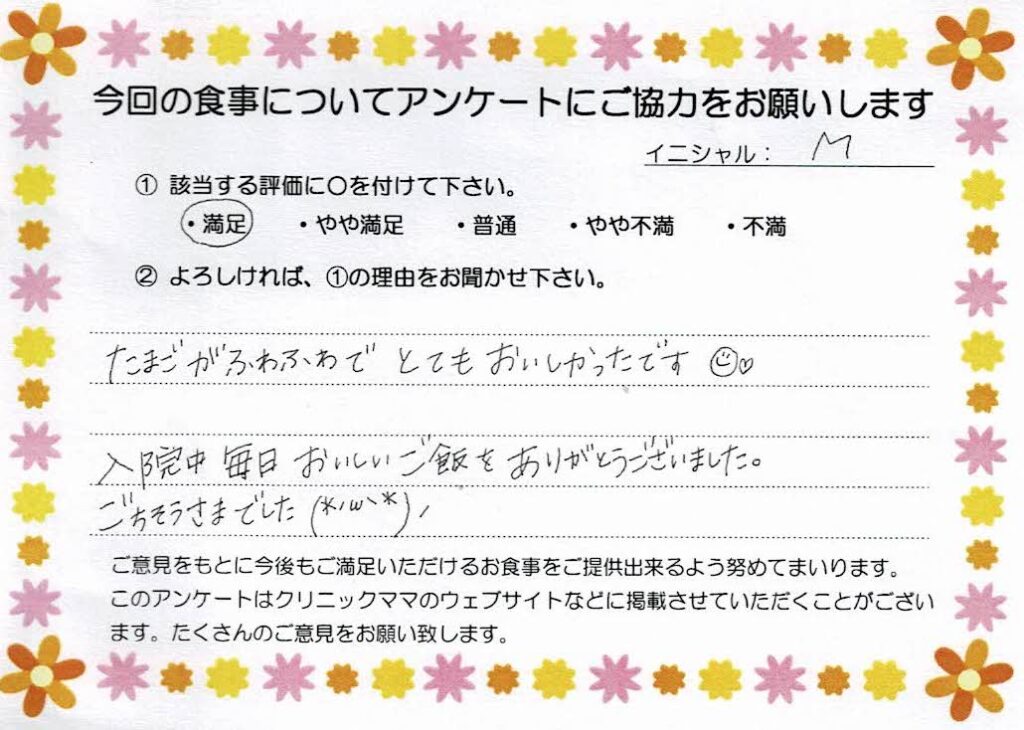 今回の食事についてアンケートにご協力をお願いします
イニシャル： M
① 該当する評価に〇を付けて下さい。
・満足 ・やや満足 ・普通 ・やや不満 ・不満
② よろしければ、①の理由をお聞かせ下さい。
たまごがふわふわで とてもおいしかったです ☺♡
入院中 毎日 おいしいご飯を ありがとうございました。
ごちそうさまでした (*'ω'*)ノ
ご意見をもとに今後もご満足いただけるお食事をご提供出来るよう努めてまいります。
このアンケートはクリニックママのウェブサイトなどに掲載させていただくことがござい
ます。たくさんのご意見をお願い致します。